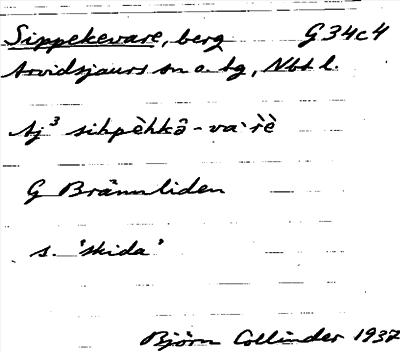 Sippekevare, berg G34c4
Arvidsjaurs sn o. tg, Nbt l.
Aj³ sihpèhkə̂-va·r̀è
G Brännliden
s. 'skida'
Björn Collinder 1937